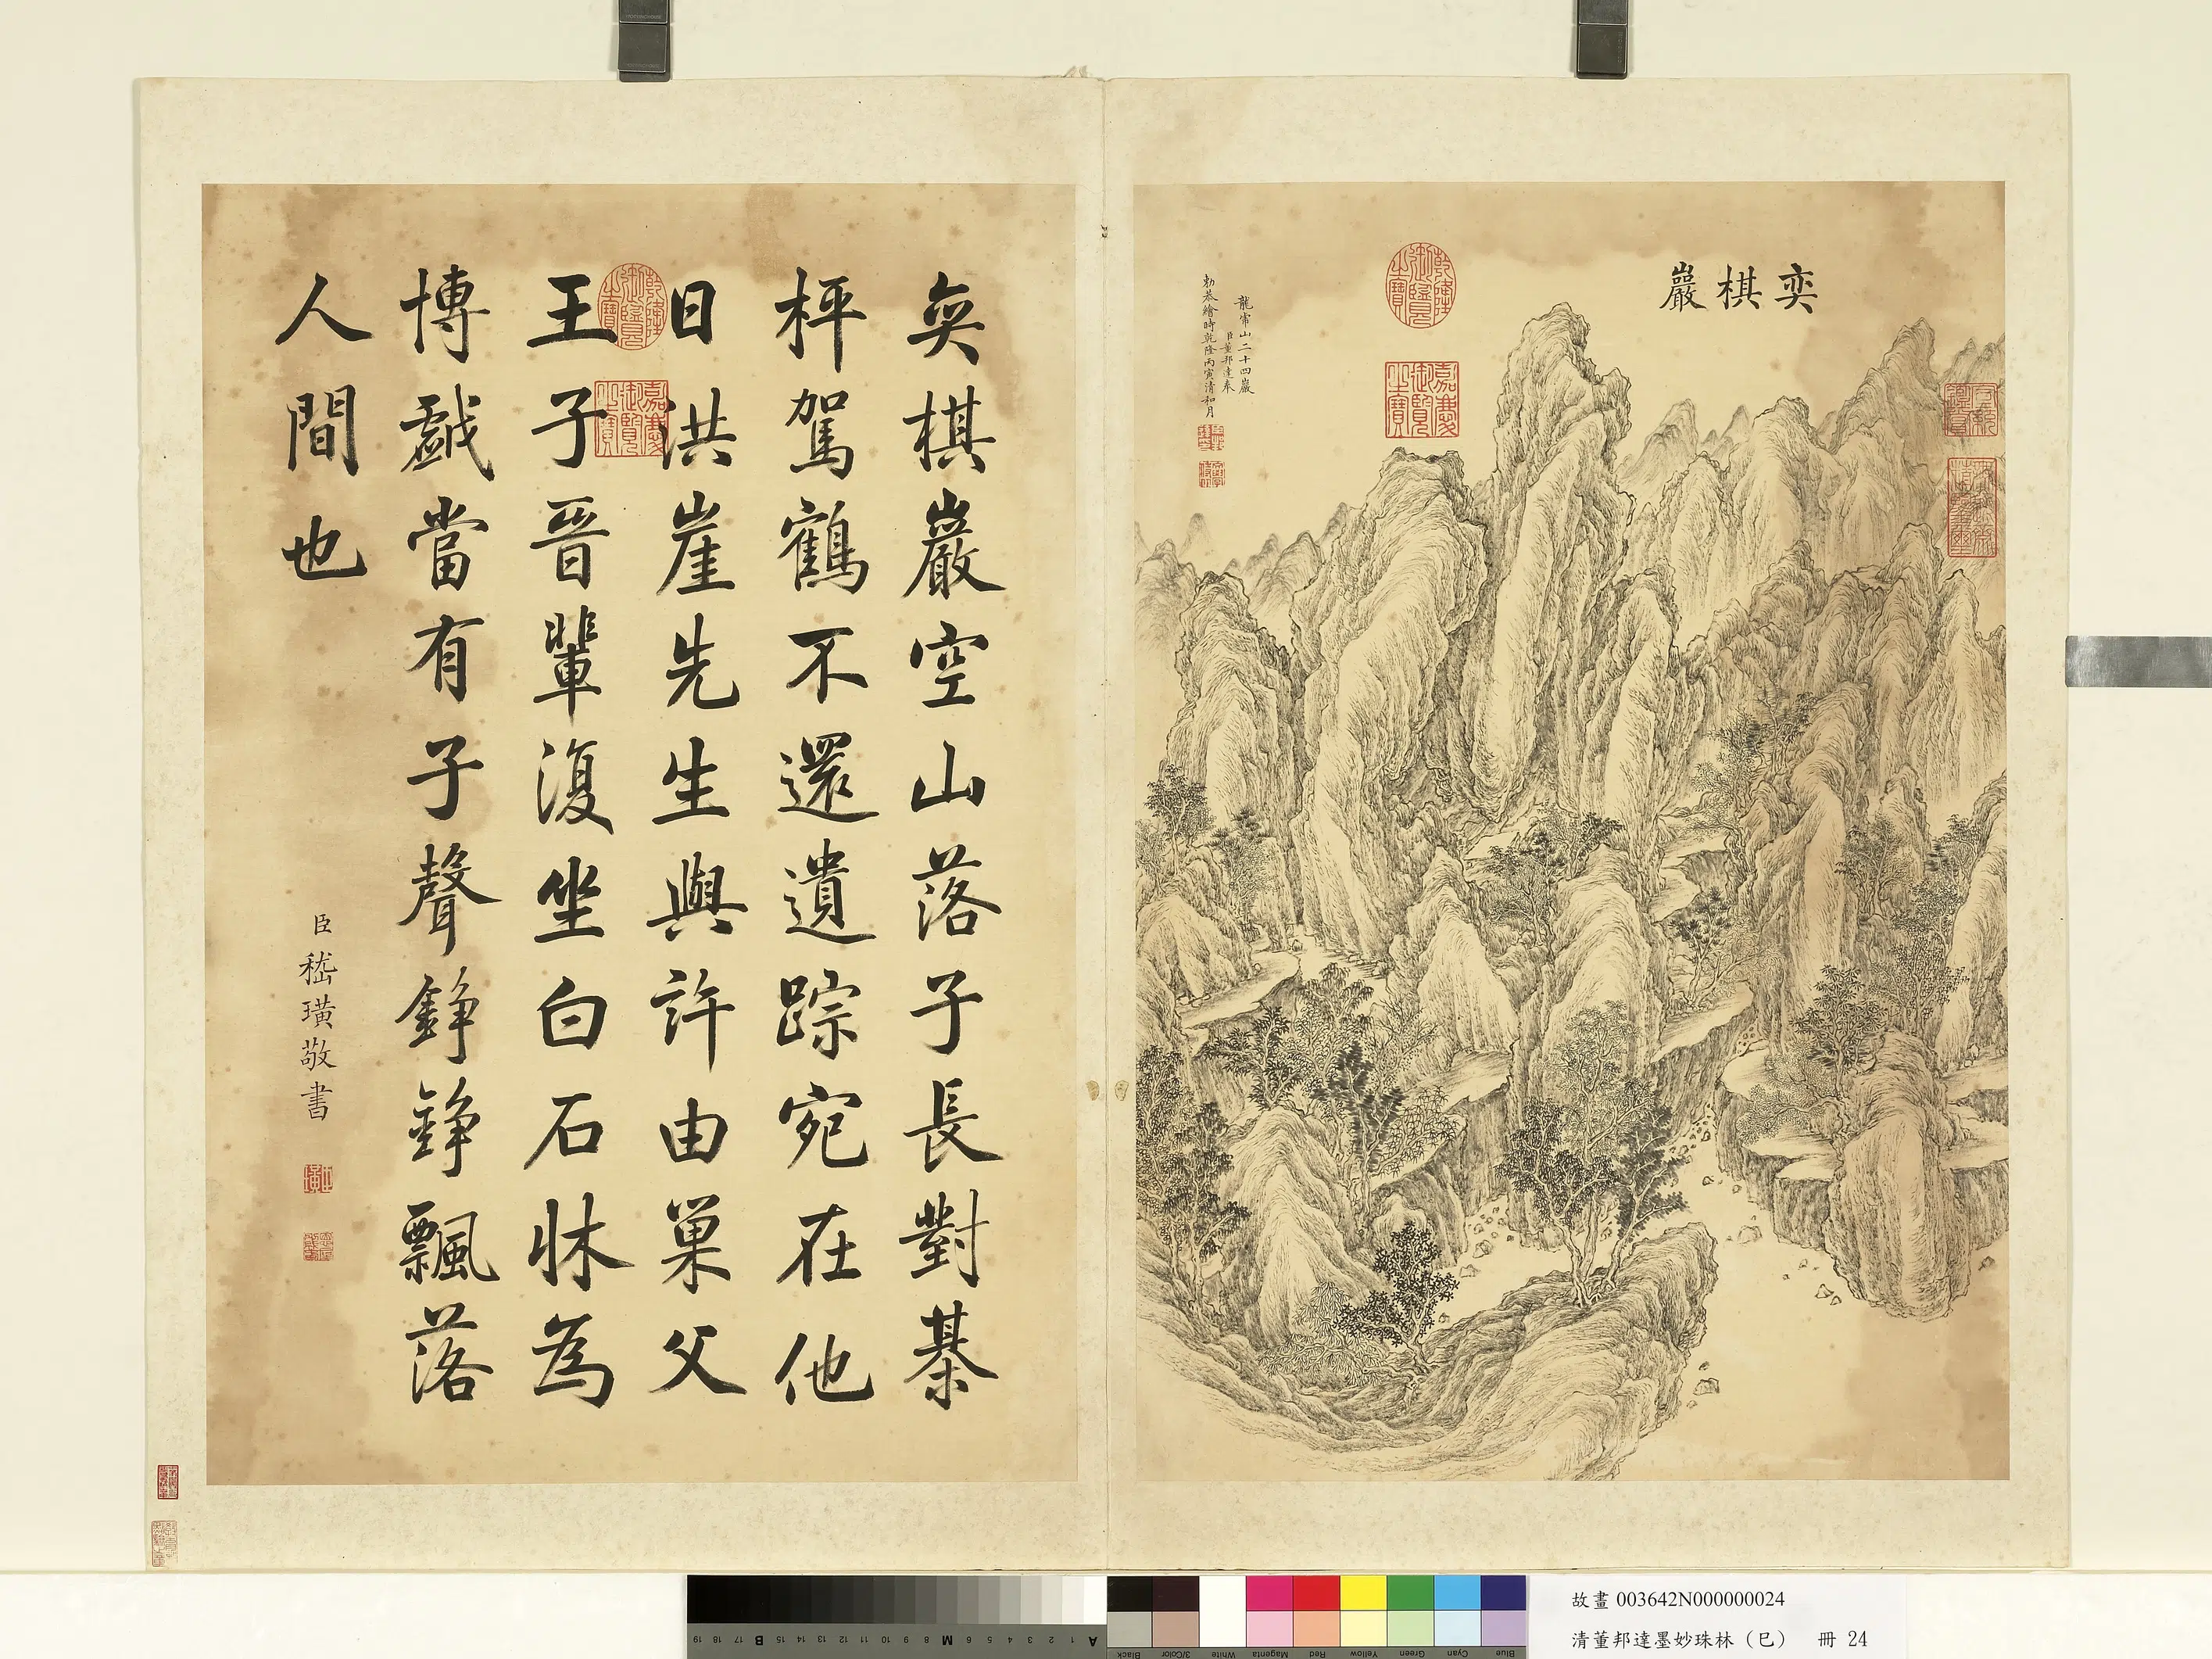 奕棋巖
龍常山二十四巖
臣董邦達奉
勅恭繪時乾隆丙寅清和月
乾隆御覽之寶
嘉慶御覽之寶
奕棋巖空山落子長對棊
枰駕鶴不還遺踪宛在他
日洪崖先生與許由巢父
王子晉輩復坐白石牀為
博戲當有子聲錚錚飄落
人間也
臣嵇璜敬書
乾隆御覽之寶
嘉慶御覽之寶
故畫 003642N000000024
清董邦達墨妙珠林(巳) 冊 24
19 18 17 B 16 15 14 13 12 11 10 9 8 M 7 6 5 4 3 2 1 A
Black 3/Color White Magenta Red Yellow Green Cyan Blue